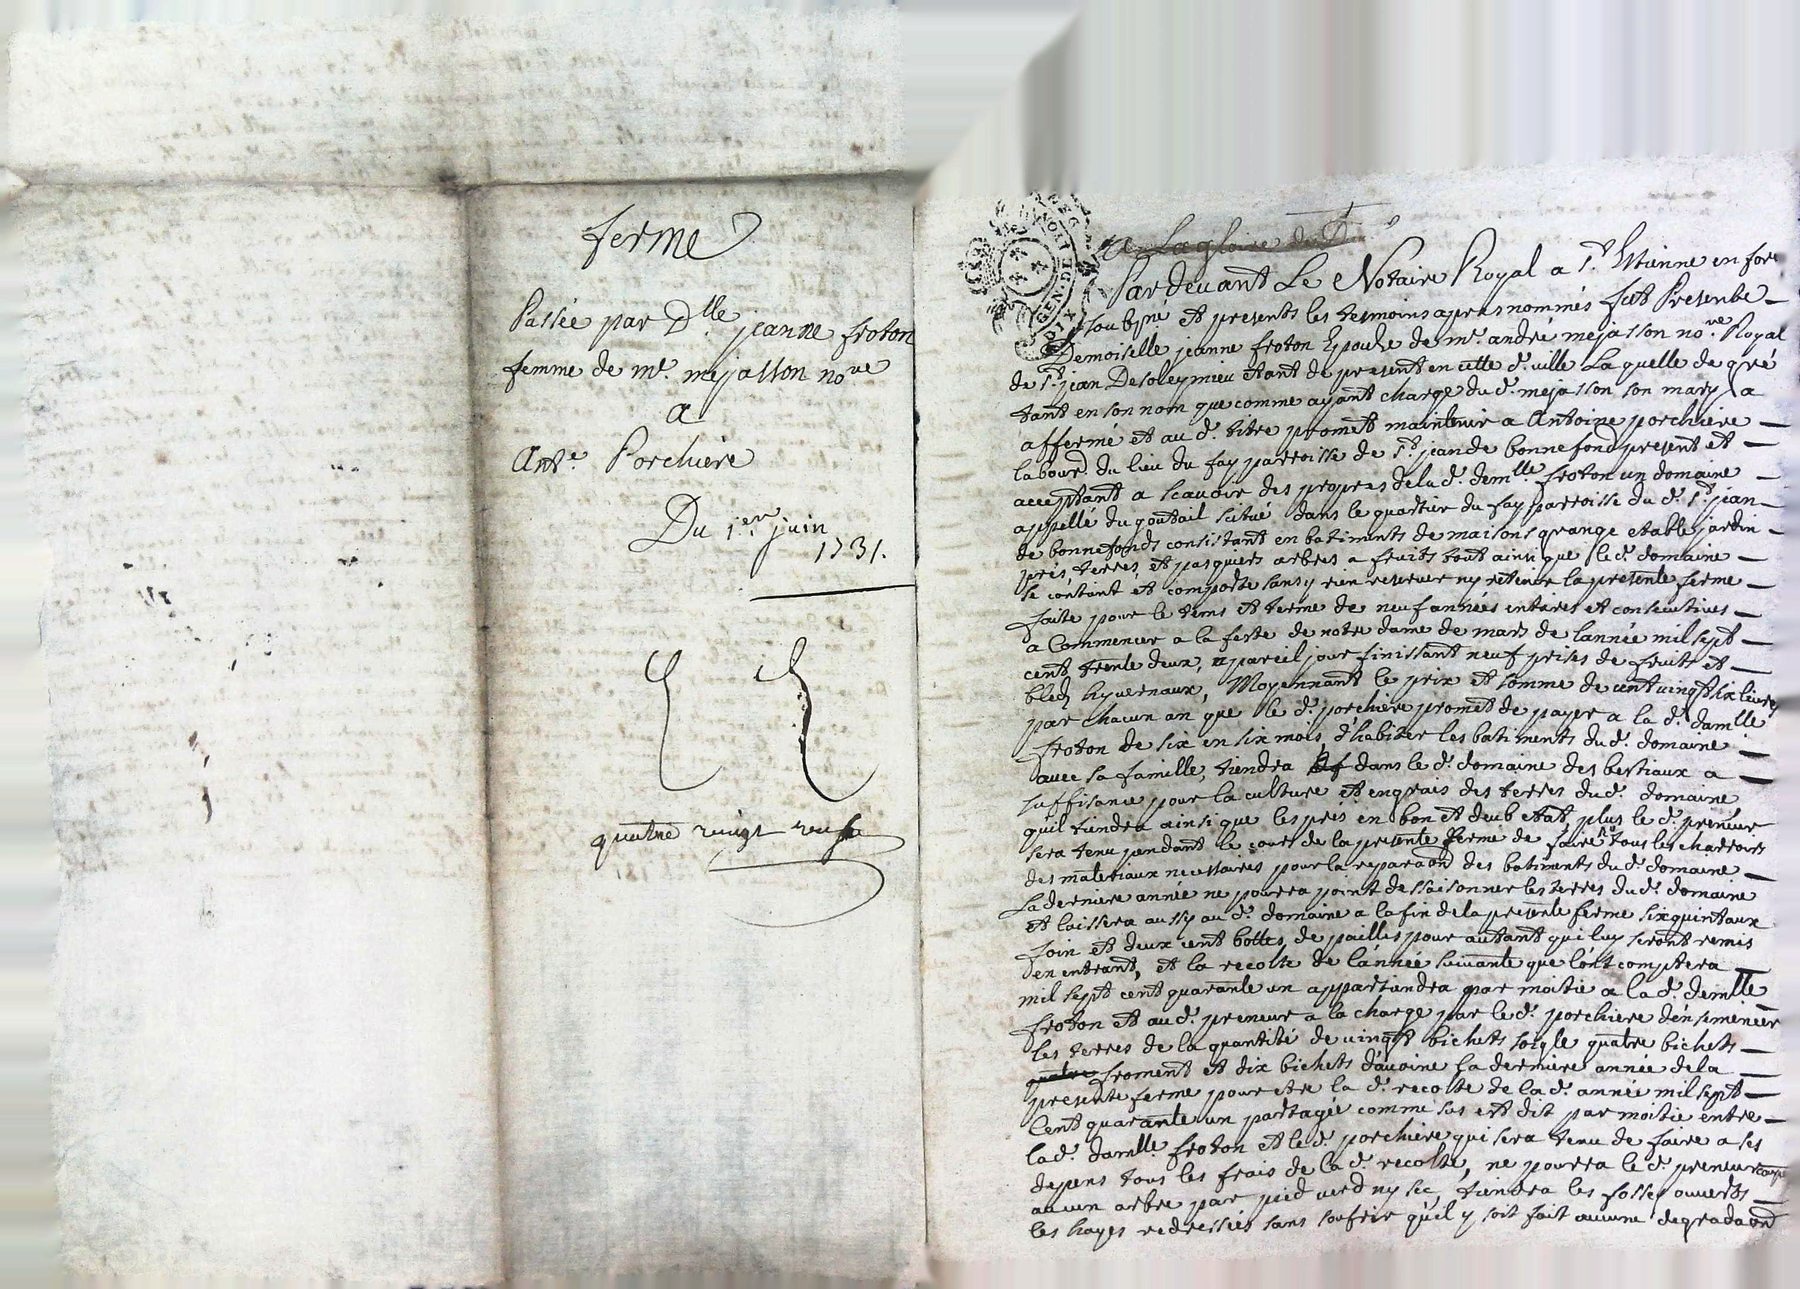 ferme
Passée par Dlle jeanne froton
femme de mr. mejasson nore
a
Ante. Porchere
Du 1er. juin
1731.
quatre vingt neuf
GEN.
a La gloire de D
Par devant Le Notaire Royal a St. Etienne en fore
soubsne et presents les tesmoins apres nommés fut Presente
Demoiselle jeanne froton Epouse de mr. andré mejasson nore Royal
de St. jean De soleymieu etant de present en cette d. ville La quelle de gré
tant en son nom que comme ayant charge du d. mejasson son mary a
affermé et au d. titre promet maintenir a Antoine porchere
labourd. du lieu du fay parroisse de St. jean de bonnefond present et
acceptant a scavoir des propres de la d. demlle. froton un domaine
appellé du goutail scitué dans le quartier du fay parroisse du d. St. jean
de bonnefonds consistant en batiments de maisons grange etables jardin
prés, terres, et pasquiers arbres a fruits tout ainsi que le d. domaine
se contient et comporte sans y rien reserver ny retenir la presente ferme
faite pour le tems et terme de neuf années entieres et consecutives
a Commencer a la feste de notre dame de mars de lannée mil sept
cent trente deux, a pareil jour finissant neuf prises de fruits et
bleds hyvernaux, Moyennant le prix et somme de cent vingt six livres
par chacun an que le d. porchere promet de payer a la d. damlle
froton de six en six mois, d'habiter les batiments du d. domaine
avec sa famille, tiendra dans le d. domaine des bestiaux a
suffisance pour la culture et engrais des terres du d. domaine
quil tiendra ainsi que les prés en bon et deub etat, plus le d. preneur
sera tenu pendant le cours de la presente ferme de faire tous les charrois
des materiaux necessaires pour la reparaon des batiments du d. domaine
La derniere année ne pourra point dessaisonner les terres du d. domaine
et laissera aussy au d. domaine a la fin de la presente ferme six quintaux
foin et deux cent bottes de pailles pour autant qui luy seront remis
en entrant, et la recolte de lannée suivante que lont comptera
mil sept cent quarante un appartiendra par moitié a la d. demlle
froton et au d. preneur a la charge par le d. porchere d'ensemencer
les terres de la quantité de vingt bichets seigle quatre bichets
quatre froment et dix bichets d'avoine la derniere année de la
presente ferme pour etre la d. recolte de la d. année mil sept
Cent quarante un partagée comme sus est dit par moitié entre
la d. damlle. froton et le d. porchere qui sera tenu de faire a ses
depens tous les frais de la d. recolte, ne pourra le d. preneur couper
aucun arbre par pied verd ny sec, tiendra les fossés ouverts
les hayes redressées sans soufrir qu'il y soit fait aucune degradaon